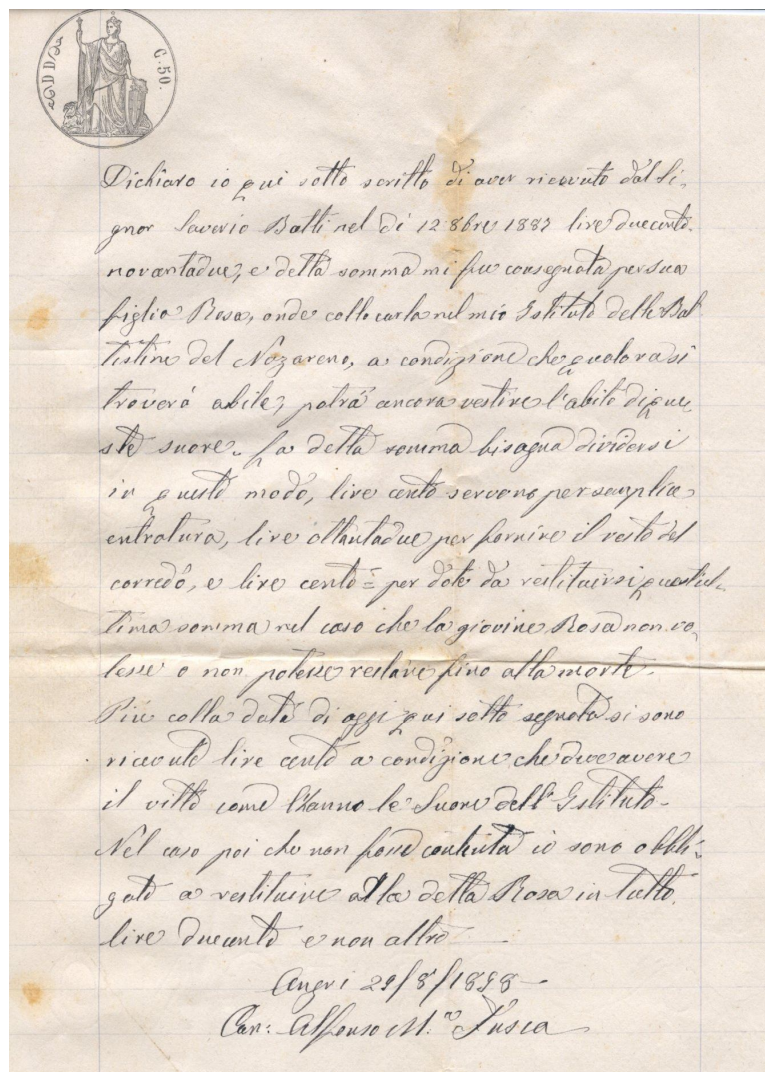 C. 50.
Dichiaro io qui sotto scritto di aver ricevuto dal Si-
gnor Saverio Batti nel dì 12 8bre 1887 lire duecento
novantadue, e detta somma mi fu consegnata per sua
figlia Rosa, onde collocarla nel mio Istituto delle Bat
tistine del Nazareno, a condizione che qualora si
troverà abile, potrà ancora vestire l'abito di que
ste suore. La detta somma bisogna dividersi
in questo modo, lire cento servono per semplice
entratura, lire ottantadue per fornire il resto del
corredo, e lire cento = per dote da restituirsi quest'ul-
tima somma nel caso che la giovine Rosa non vo-
lesse o non potesse restare fino alla morte.
Più colla data di oggi qui sotto segnata si sono
ricevute lire cento a condizione che deve avere
il vitto come l'hanno le Suore dell'Istituto.
Nel caso poi che non fosse contenta io sono obbli-
gato a restituire alla detta Rosa in tutto
lire duecento e non altro
Angri 29/8/1898
Can: Alfonso M.a Fusco